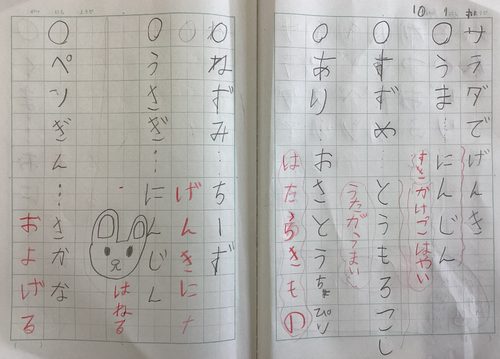 サラダでげんき
○うま…にんじん
はやい
○すずめ…とうもろこし
うたがうまい
○あり…おさとうちょぴり
はたらきもの
○ねずみ…ちーず
げんきに
○うさぎ…にんじん
はねる
○ペンぎん…さかな
およげる